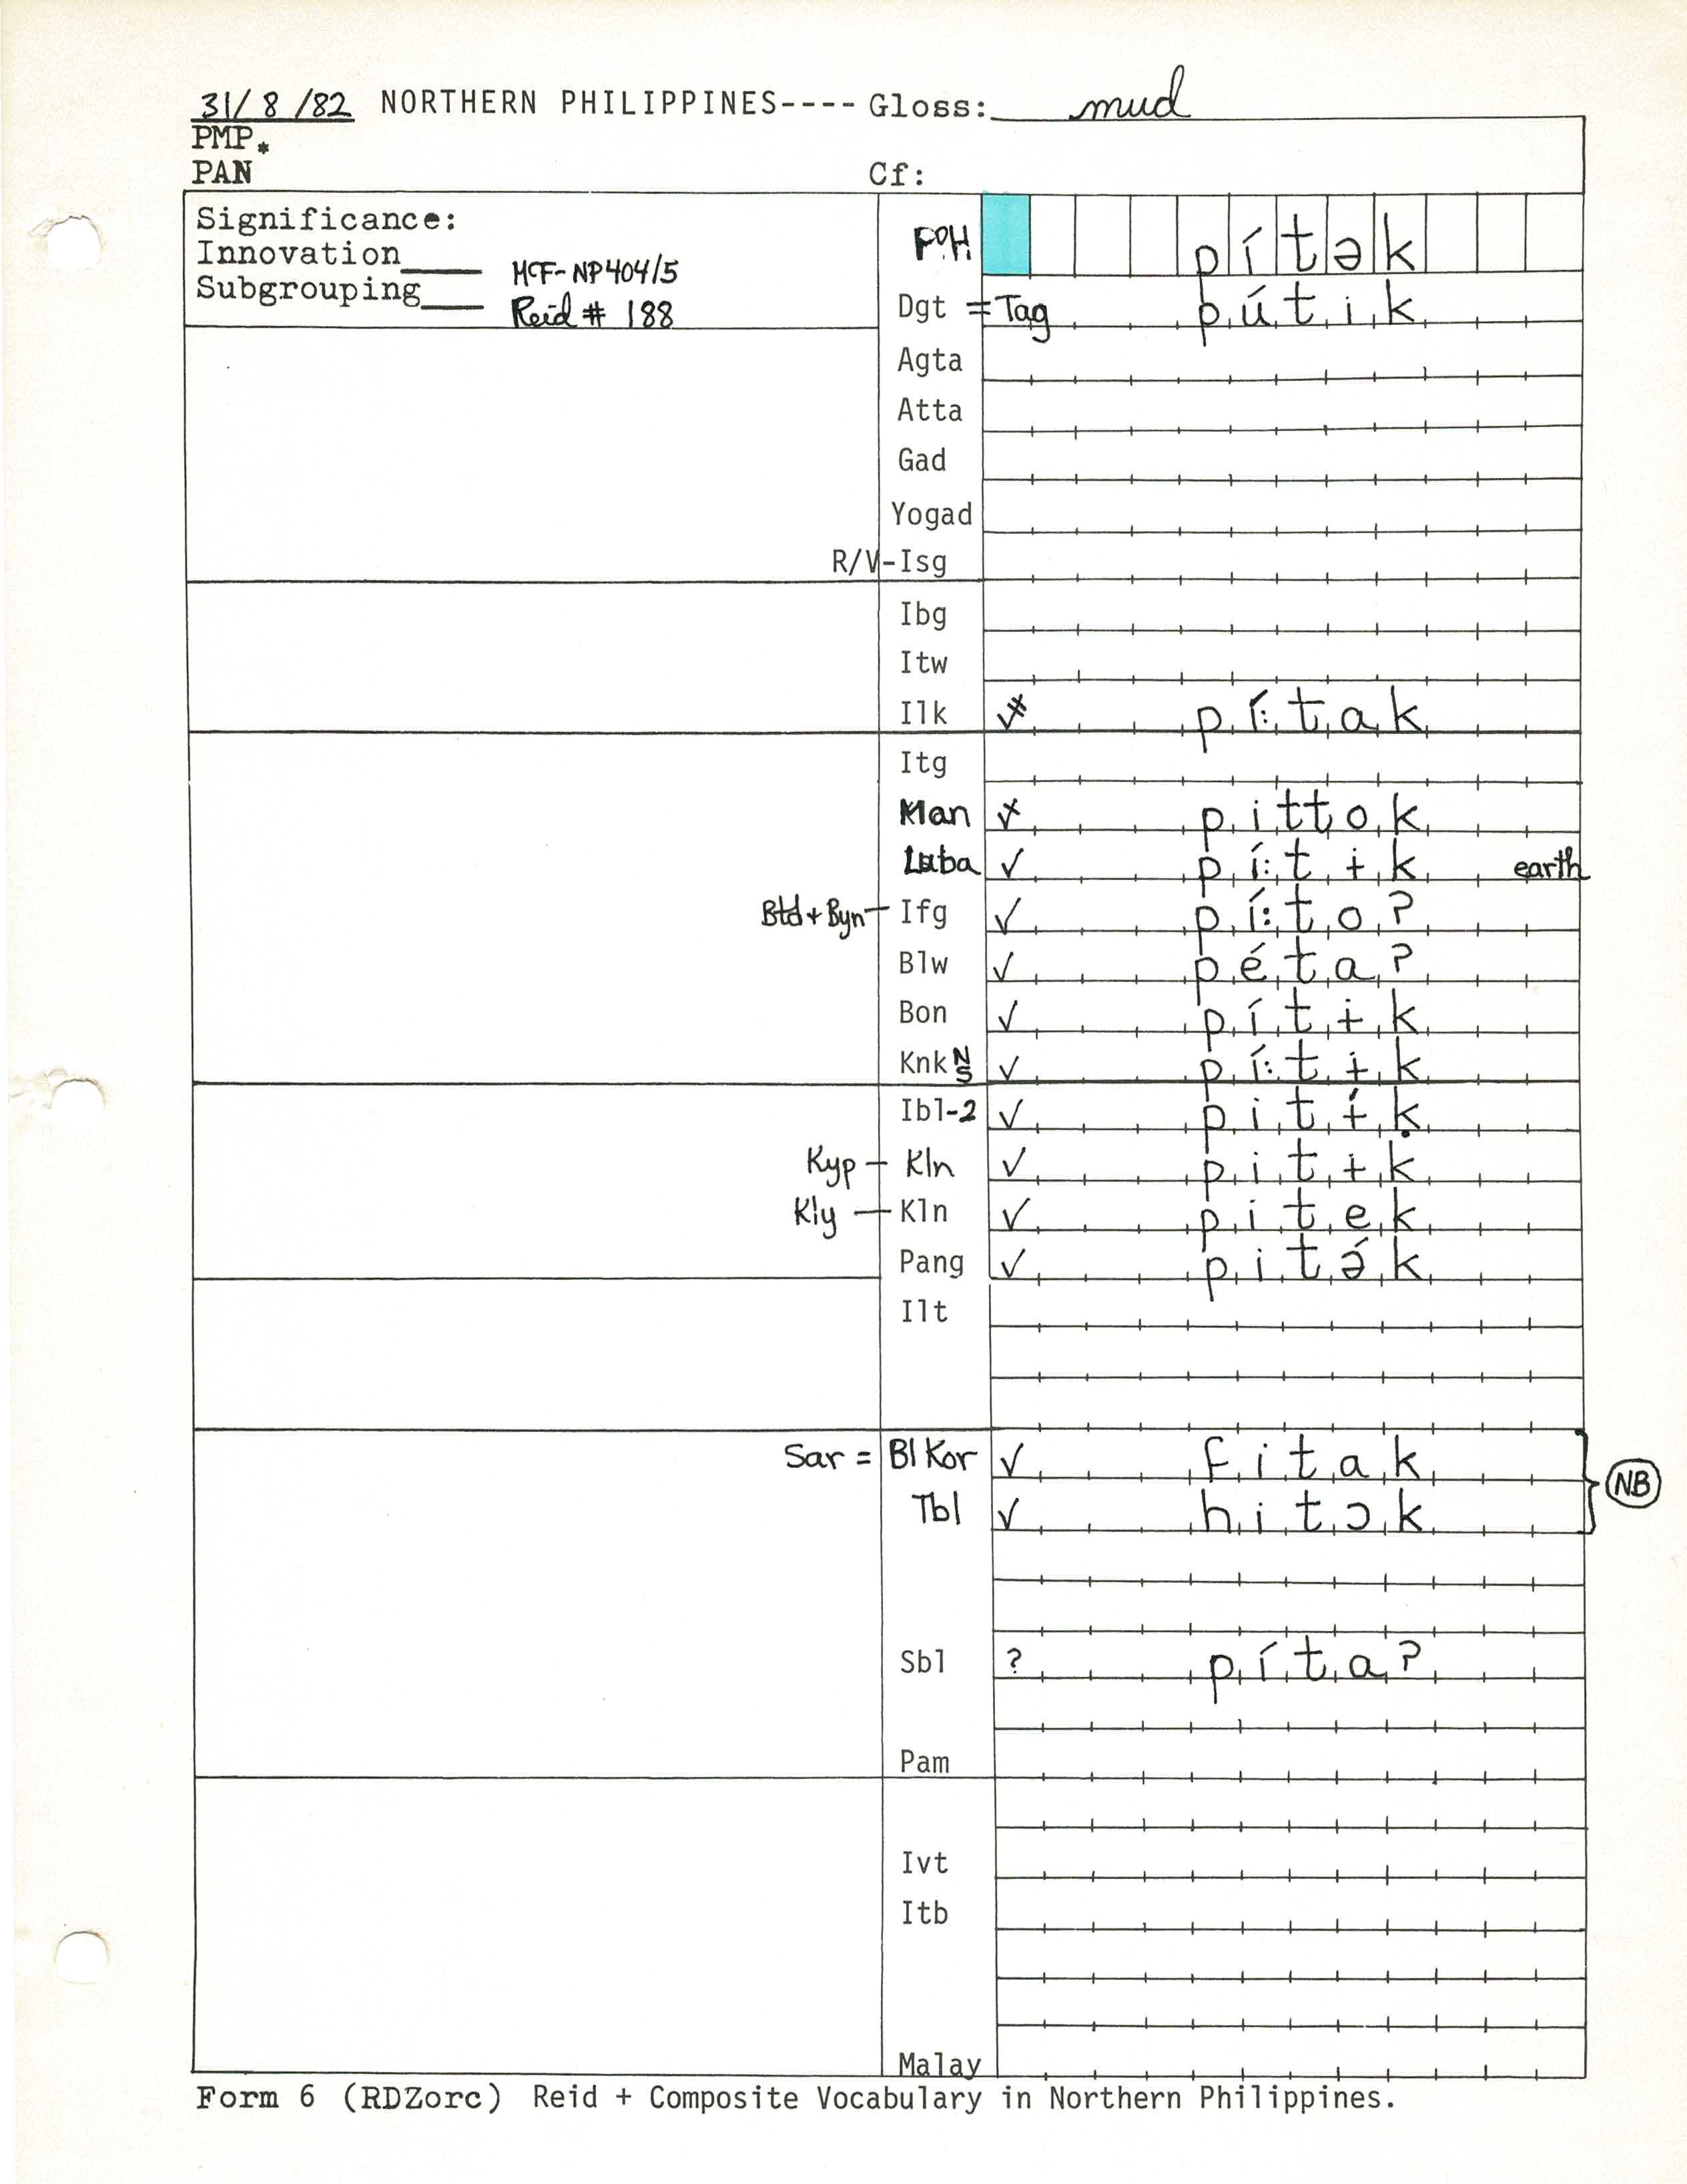 31/8/82 NORTHERN PHILIPPINES---- Gloss: mud
PMP*
PAN Cf:
Significance:
Innovation____ MCF-NP404/5
Subgrouping____ Reid # 188
PPH pítək
Dgt = Tag pútik
Agta
Atta
Gad
Yogad
R/V-Isg
Ibg
Itw
Ilk pí:tak
Itg
Man pittok
Luba ✓ pí:tɨk earth
Btd + Byn - Ifg ✓ pí:to?
Blw ✓ péta?
Bon ✓ pítɨk
Knk N/S ✓ pí:tɨk
Ibl-2 ✓ pitɨ́ḳ
Kyp - Kln ✓ pitɨk
Kly - Kln ✓ pitek
Pang ✓ pitə́k
Ilt
Sar = Bl Kor ✓ fitak
Tbl ✓ hitɔk
NB
Sbl ? píta?
Pam
Ivt
Itb
Malay
Form 6 (RDZorc) Reid + Composite Vocabulary in Northern Philippines.